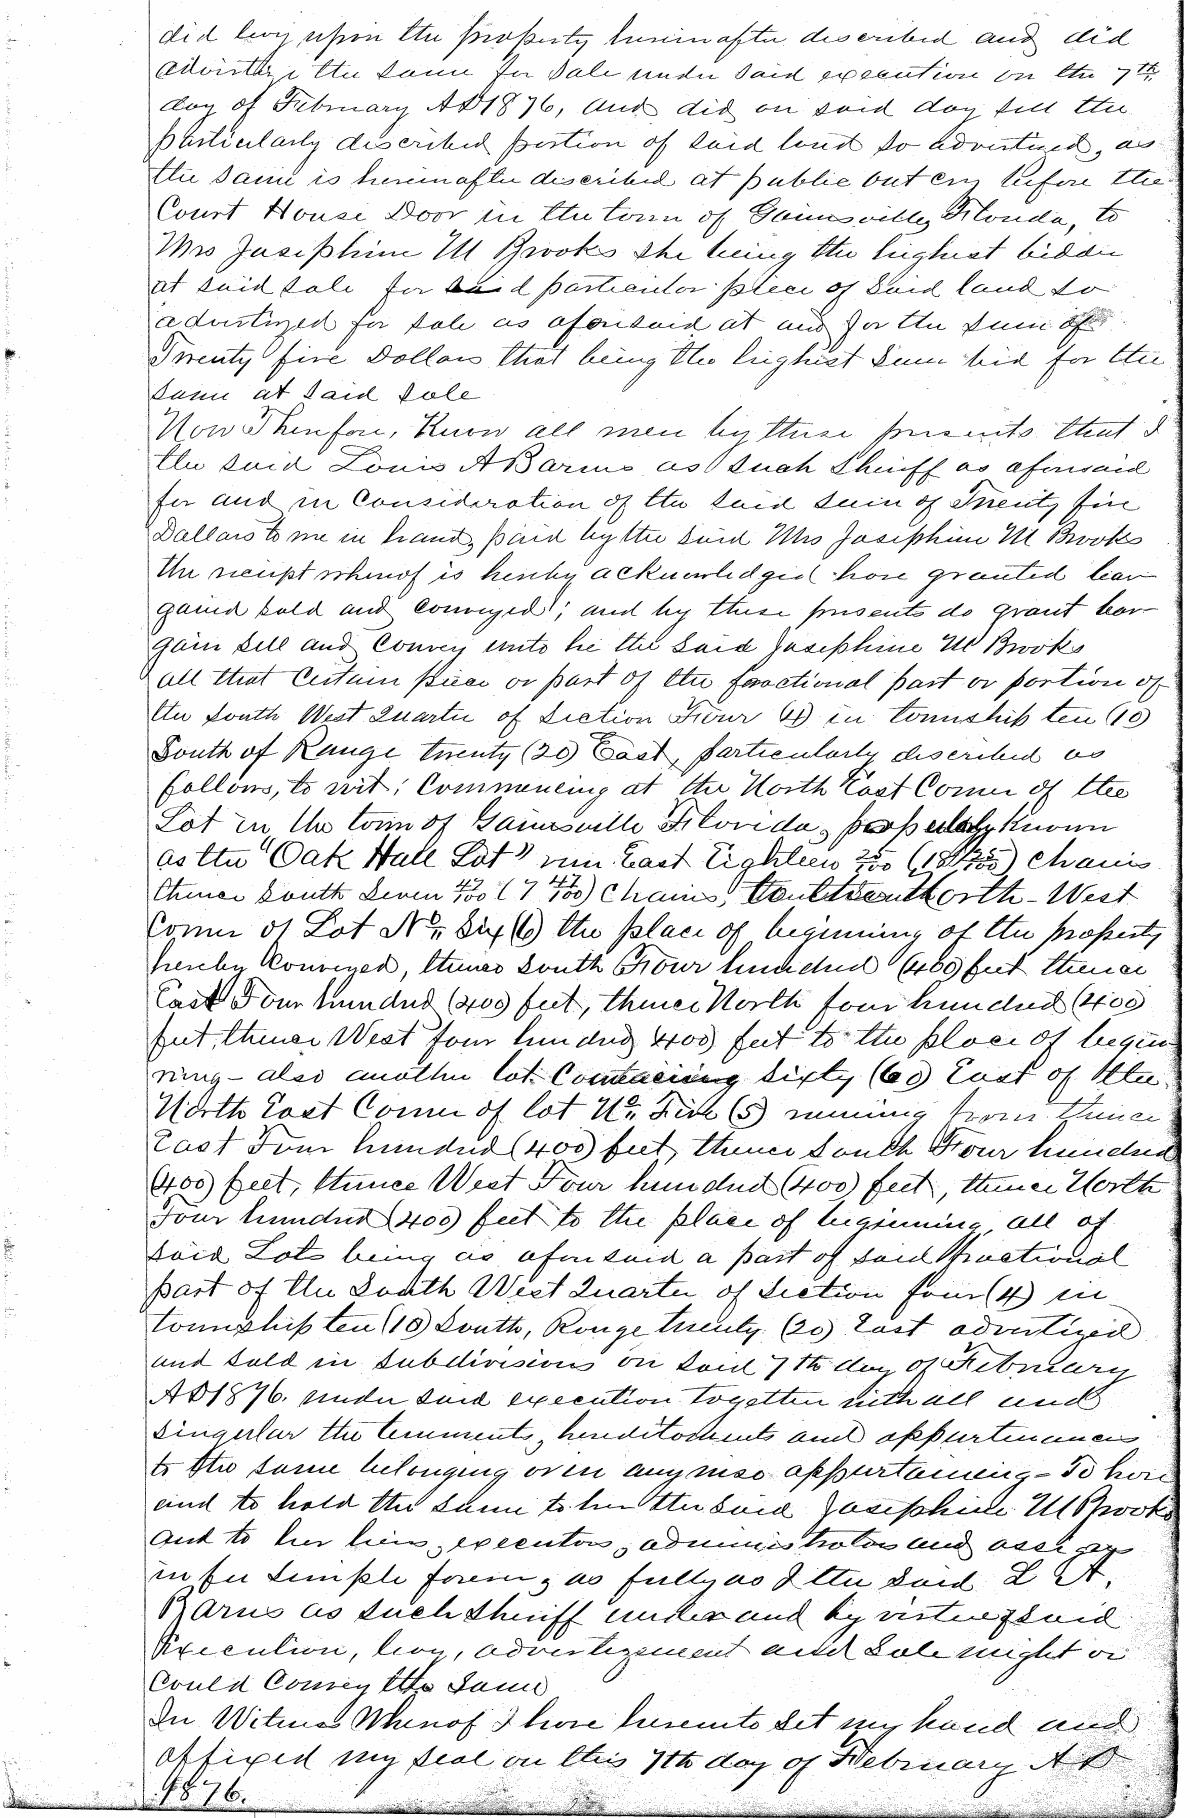 did levy upon the property hereinafter described and did
advertize the same for sale under said execution on the 7th
day of February AD 1876, and did on said day sell the
particularly described portion of said land so advertized, as
the same is hereinafter described at public out cry before the
Court House Door in the town of Gainesville, Florida, to
Mrs Josephine M Brooks she being the highest bidder
at said sale for said particular piece of said land so
advertized for sale as aforesaid at and for the sum of
Twenty five Dollars that being the highest sum bid for the
same at said sale
Now Therefore, Know all men by these presents that I
the said Louis A Barns as such Sheriff as aforesaid
for and in Consideration of the said sum of Twenty five
Dollars to me in hand, paid by the said Mrs Josephine M Brooks
the receipt whereof is hereby acknowledged have granted bar-
gained sold and conveyed; and by these presents do grant bar-
gain sell and Convey unto he the said Josephine M Brooks
all that certain piece or part of the fractional part or portion of
the South West Quarter of Section Four (4) in township ten (10)
South of Range twenty (20) East, particularly described as
follows, to wit; Commencing at the North East Corner of the
Lot in the town of Gainesville Florida, Known
as the "Oak Hall Lot" run East Eighteen 25/100 (18 25/100) chains
thence South Seven 47/100 (7 47/100) Chains, North-West
Corner of Lot No. Six (6) the place of beginning of the property
hereby Conveyed, thence South Four hundred (400) feet thence
East Four hundred (400) feet, thence North four hundred (400)
feet, thence West four hundred 400) feet to the place of begin
ning - also another lot. Commencing Sixty (60) East of the
North East Corner of lot No. Five (5) running from thence
East Four hundred (400) feet, thence South Four hundred
(400) feet, thence West Four hundred (400) feet, thence North
Four hundred (400) feet to the place of beginning, all of
said Lots being as aforesaid a part of said fractional
part of the South West Quarter of Section four (4) in
township ten (10) South, Range twenty (20) East advertized
and sold in subdivisions on said 7th day of February
AD 1876. under said execution together with all and
singular the tenements, hereditaments and appurtenances
to the same belonging or in any wise appurtaining - To have
and to hold the same to her the said Josephine M Brooks
and to her heirs, executors, administrators and assigns
in fee simple forever, as fully as I the said L A.
Barns as such Sheriff under and by virtue of said
Execution, levy, advertizement and Sale might or
could Convey the same
In Witness Whereof I have hereunto set my hand and
affixed my seal on this 7th day of February AD
1876.